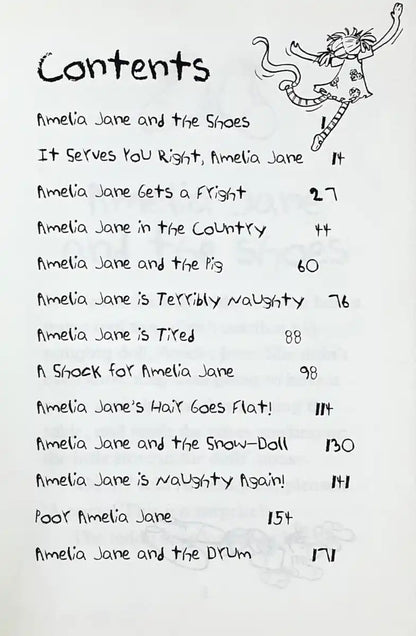 Contents
Amelia Jane and the Shoes 1
It Serves You Right, Amelia Jane 14
Amelia Jane Gets a Fright 27
Amelia Jane in the Country 44
Amelia Jane and the Pig 60
Amelia Jane is Terribly Naughty 76
Amelia Jane is Tired 88
A Shock for Amelia Jane 98
Amelia Jane's Hair Goes Flat! 114
Amelia Jane and the Snow-Doll 130
Amelia Jane is Naughty Again! 141
Poor Amelia Jane 154
Amelia Jane and the Drum 171